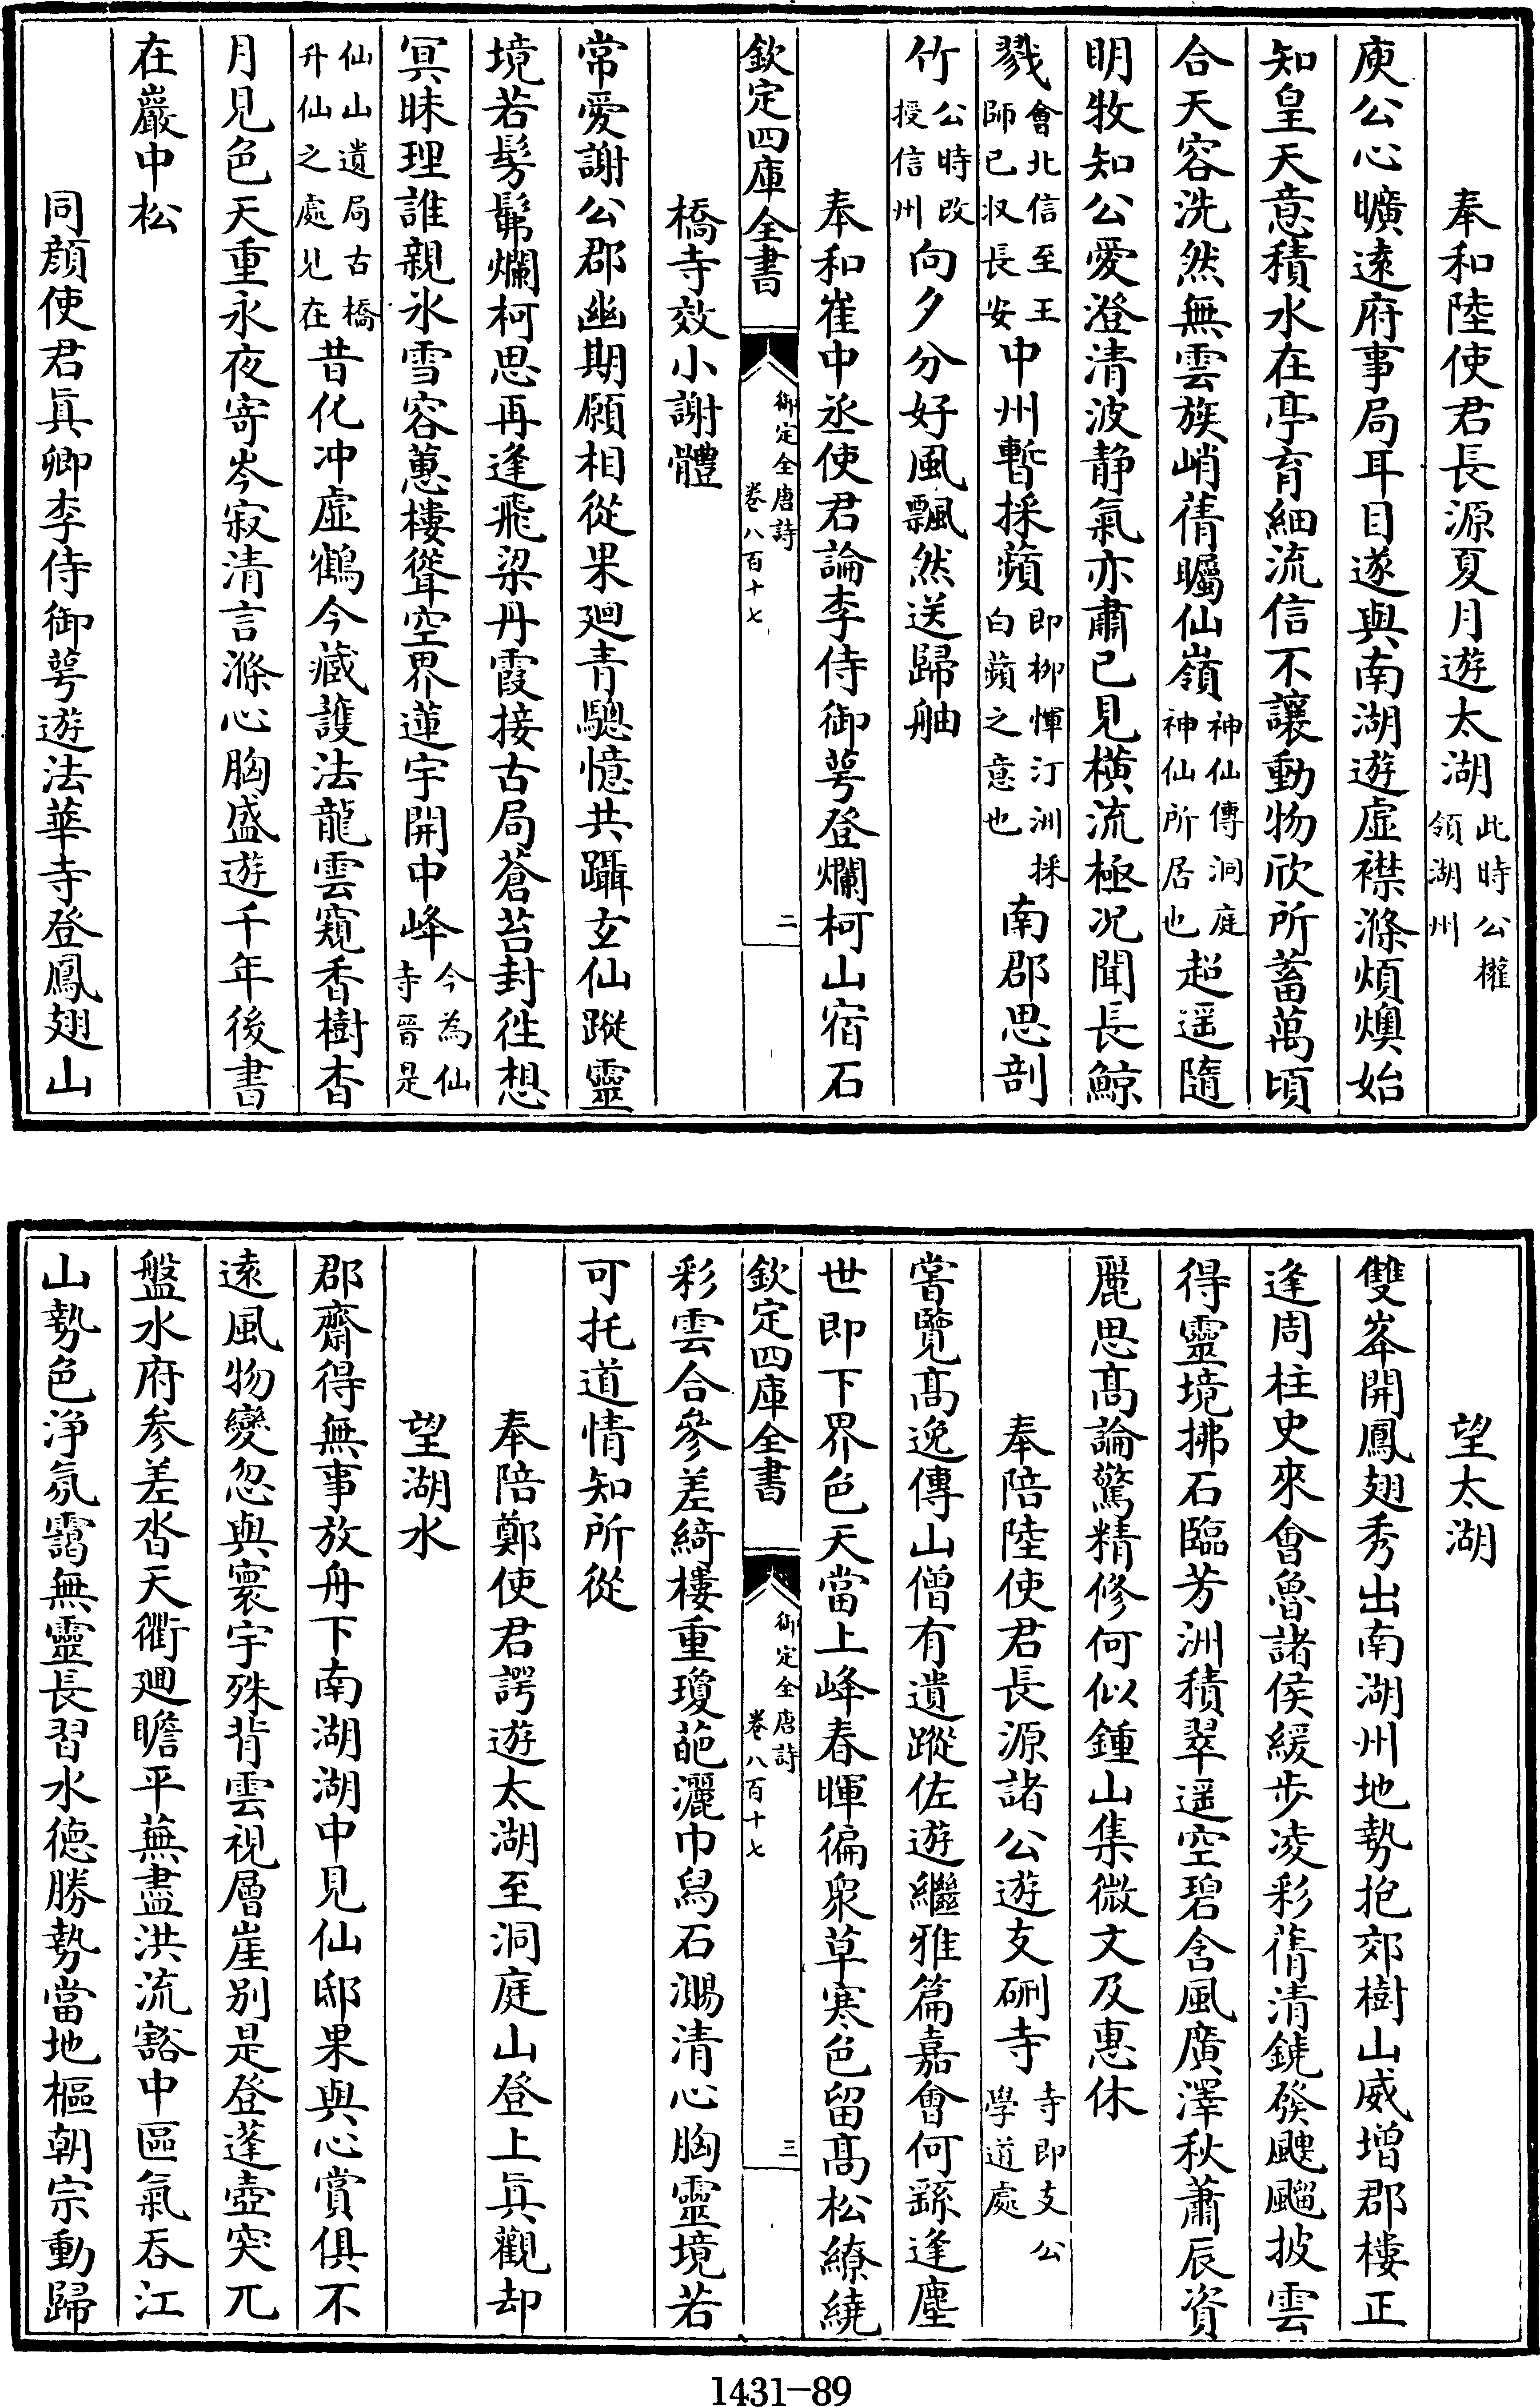 奉和陸使君長源夏月遊太湖此時公權領湖州
庾公心曠遠府事局耳目遂與南湖遊虛襟滌煩燠始
知皇天意積水在亭育細流信不讓動物欣所蓄萬頃
合天容洗然無雲族峭蒨矚仙嶺神仙傳洞庭神仙所居也超遥隨
明牧知公愛澄清波静氣亦肅已見横流極况聞長鯨
戮會北信至王師已收長安中州暫採蘋即栁惲汀洲採白蘋之意也南郡思剖
竹公時改授信州向夕分好風飄然送歸舳
奉和崔中丞使君論李侍御萼登爛柯山宿石
欽定四庫全書
御定全唐詩
卷八百十七
二
橋寺效小謝體
常愛謝公郡幽期願相從果廻青驄憶共躡玄仙蹤靈
境若髣髴爛柯思再逢飛梁丹霞接古局蒼苔封徃想
冥昧理誰親氷雪容蕙樓聳空界蓮宇開中峰今為仙寺晉是
仙山遺局古橋升仙之處見在昔化冲虛鶴今藏護法龍雲窺香樹杳
月見色天重永夜寄岑寂清言滌心胸盛遊千年後書
在巖中松
同顔使君眞卿李侍御萼遊法華寺登鳳翅山
望太湖
雙峯開鳳翅秀出南湖州地勢抱郊樹山威增郡樓正
逢周柱史來會魯諸侯緩步凌彩蒨清鐃發颼飀披雲
得靈境拂石臨芳洲積翠遥空碧含風廣澤秋蕭辰資
麗思髙論驚精修何似鍾山集微文及惠休
奉陪陸使君長源諸公遊支硎寺寺即支公學道處
嘗覽髙逸傳山僧有遺蹤佐遊繼雅篇嘉會何繇逢塵
世即下界色天當上峰春暉徧衆草寒色留髙松繚繞
欽定四庫全書
御定全唐詩
卷八百十七
三
彩雲合參差綺樓重瓊葩灑巾舄石溜清心胸靈境若
可托道情知所從
奉陪鄭使君諤遊太湖至洞庭山登上眞觀却
望湖水
郡齋得無事放舟下南湖湖中見仙邸果與心賞俱不
遠風物變忽與寰宇殊背雲視層崖别是登蓬壺突兀
盤水府参差沓天衢廻瞻平蕪盡洪流豁中區氣吞江
山勢色淨氛靄無靈長習水德勝勢當地樞朝宗動歸
1431-89